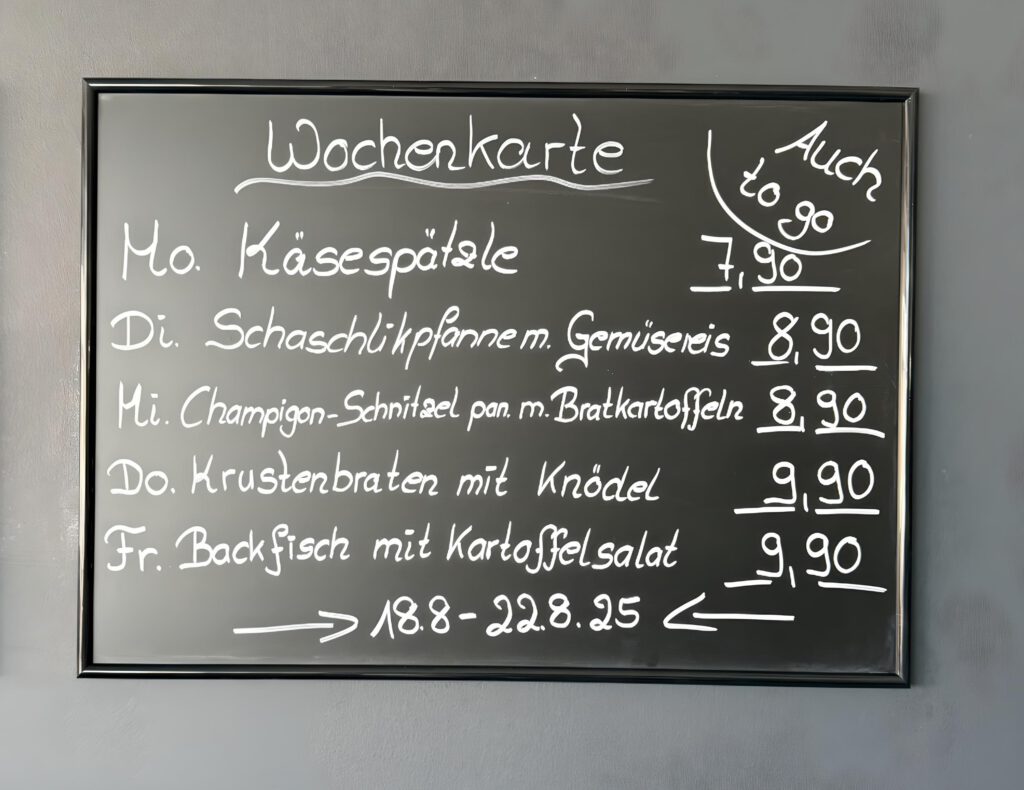 Wochenkarte
Auch
to go
Mo. Käsespätzle 7,90
Di. Schaschlikpfanne m. Gemüsereis 8,90
Mi. Champigon-Schnitzel pan. m. Bratkartoffeln 8,90
Do. Krustenbraten mit Knödel 9,90
Fr. Backfisch mit Kartoffelsalat 9,90
→ 18.8 - 22.8.25 ←